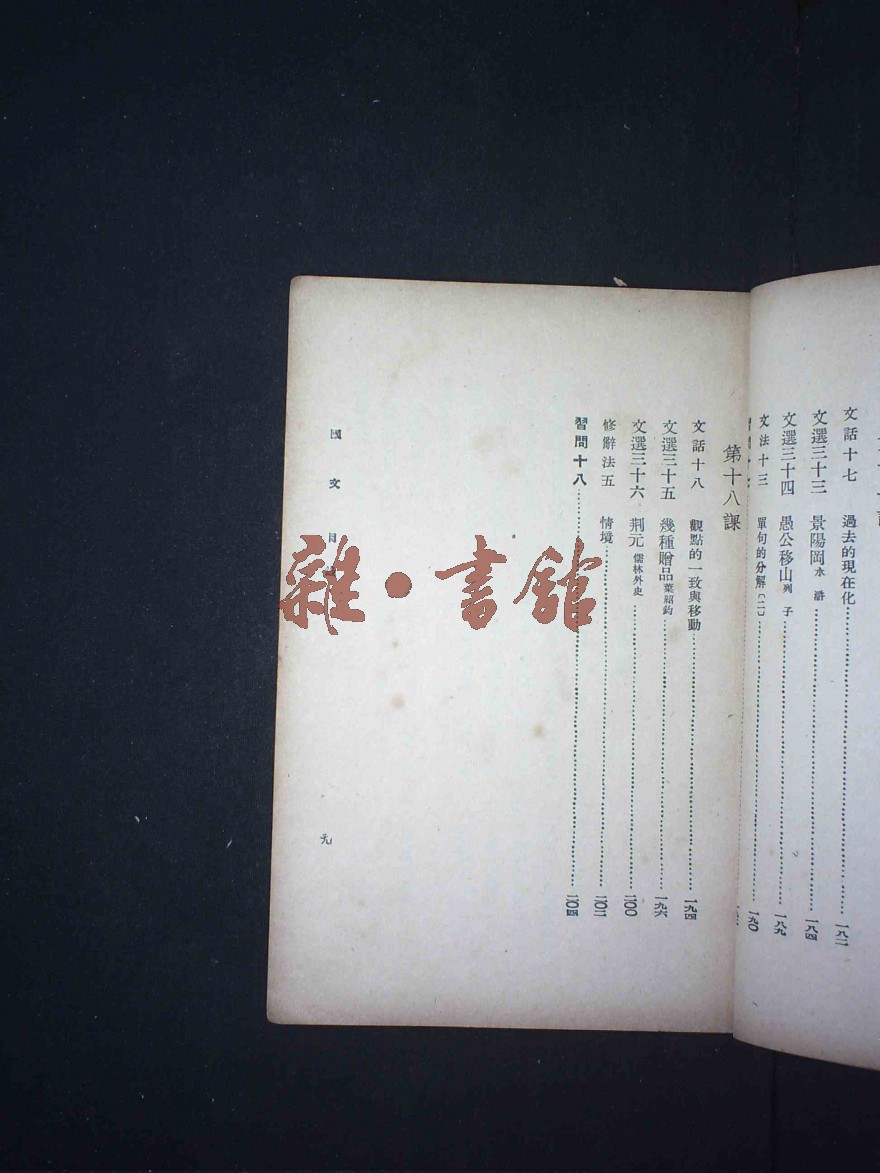 文話十七 過去的現在化……一八二
文選三十三 景陽岡 水滸……一八四
文選三十四 愚公移山 列子……一八九
文法十三 單句的分解(二)……一九〇
第十八課
文話十八 觀點的一致與移動……一九四
文選三十五 幾種贈品 葉紹鈞……一九六
文選三十六 荆元 儒林外史……二〇〇
修辭法五 情境……二〇二
習問十八……二〇四
國文目
九
雜·書館